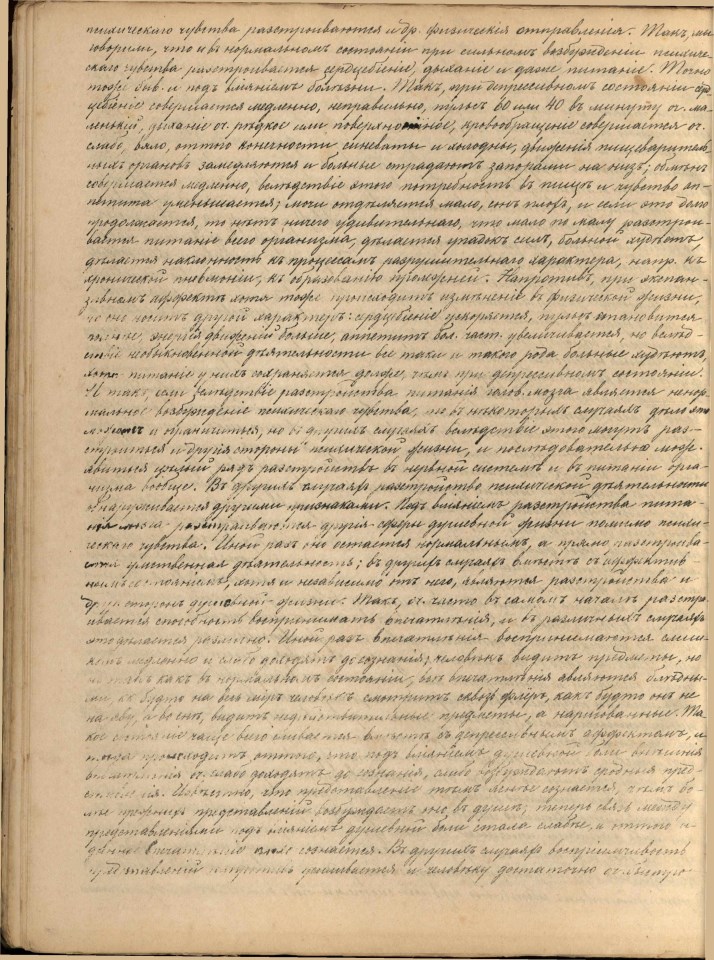 психическаго чувства разстроиваются и др. физическія отправленія. Такъ, мы
говорили, что и въ нормальномъ состояніи при сильномъ возбужденіи психиче-
скаго чувства разстроивается сердцебіеніе, дыханіе и даже питаніе. Точно
тоже быв. и подъ вліяніемъ болѣзни. Такъ, при депрессивномъ состояніи сер-
дцебіеніе совершается медленно, неправильно, пульсъ 60 или 40 въ минуту оч. ма-
ленькій, дыханіе оч. рѣдкое или поверхностное, кровообращеніе совершается оч.
слабо, вяло, оттого конечности синеваты и холодны, движенія пищеваритель-
ныхъ органовъ замедляются и больные страдаютъ запорами на низъ; обмѣнъ
совершается медленно, вслѣдствіе этого потребность въ пищѣ и чувство ап-
петита уменьшается; мочи отдѣляется мало, сонъ плохъ, и если это долго
продолжается, то нѣтъ ничего удивительнаго, что мало по малу разстрои-
вается питаніе всего организма, дѣлается упадокъ силъ, больной худѣетъ,
дѣлается наклонность къ процессамъ разрушительнаго характера, напр. къ
хронической пневмоніи, къ образованію пролежней. Напротивъ, при экспан-
зивномъ аффектѣ хотя тоже происходитъ измѣненіе въ физической жизни,
но оно носитъ другой характеръ: сердцебіеніе ускоряется, пульсъ становится
энергія движеній больше, аппетитъ бол. част. увеличивается, но вслѣд-
ствіе необыкновенной дѣятельности все таки и такого рода больные худѣютъ,
хотя питаніе у нихъ сохраняется дольше, чѣмъ при депрессивномъ состояніи.
И такъ, если вслѣдствіе разстройства питанія голов. мозга является ненор-
мальное возбужденіе психическаго чувства, то въ нѣкоторыхъ случаяхъ дѣло этимъ
и ограничиться, но въ другихъ случаяхъ вслѣдствіе этого могутъ раз-
строиться и другія стороны психической жизни, и послѣдовательно может
явиться цѣлый рядъ разстройствъ въ нервной системѣ и въ питаніи орга-
низма вообще. Въ другихъ случаяхъ разстройство психической дѣятельности
обнаруживается другими признаками. Подъ вліяніемъ разстройства пита-
нія мозга разстраиваются другія сферы душевной жизни помимо психи-
ческаго чувства. Иной разъ оно остается нормальнымъ, а прямо разстроива-
ется умственная дѣятельность; въ другихъ случаяхъ вмѣстѣ съ аффектив-
нымъ состояніемъ, хотя и независимо отъ него, являются разстройства и
др. сторонъ душевной жизни. Такъ, оч. часто въ самомъ началѣ разстро-
ивается способность воспринимать впечатлѣнія, и въ различныхъ случаяхъ
это дѣлается различно. Иной разъ впечатлѣнія воспринимаются слиш-
комъ медленно и слабо доходятъ до сознанія; человѣкъ видитъ предметы, но
не такъ какъ въ нормальномъ состояніи, всѣ впечатлѣнія являются блѣдны-
ми, какъ будто на весь міръ человѣкъ смотритъ сквозь флёръ, какъ будто онъ не
на яву, а во снѣ, видитъ не дѣйствительные предметы, а нарисованные. Та-
кое состояніе чаще всего бываетъ вмѣстѣ съ депрессивнымъ аффектомъ, и
происходитъ оттого, что подъ вліяніемъ душевной боли внѣшнія
впечатлѣнія оч. слабо доходятъ до сознанія, слабо возбуждаютъ сродныя пред-
ставленія. Извѣстно, что представленіе тѣмъ яснѣе сознается, чѣмъ бо-
лѣе прежнихъ представленій возбуждаетъ оно въ душѣ; теперь связь между
представленіями подъ вліяніемъ душевной боли стала слабѣе, и оттого
данное впечатлѣніе сознается. Въ другихъ случаяхъ воспріимчивость
представленій усиливается и человѣку достаточно